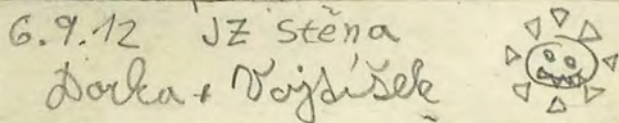 6.9.12 JZ stěna
Dorka + Vojtíšek